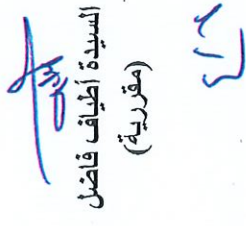 السيدة أطياف فاضل
(مقررية)